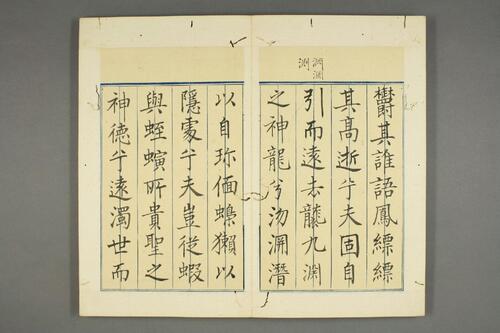 淵淵
淵
鬱其誰語鳳縹縹
其高逝兮夫固自
引而遠去龍九淵
之神龍兮沕淵潛
以自珍偭蟂獺以
隱處兮夫豈從蝦
與蛭螾所貴聖之
神德兮遠濁世而